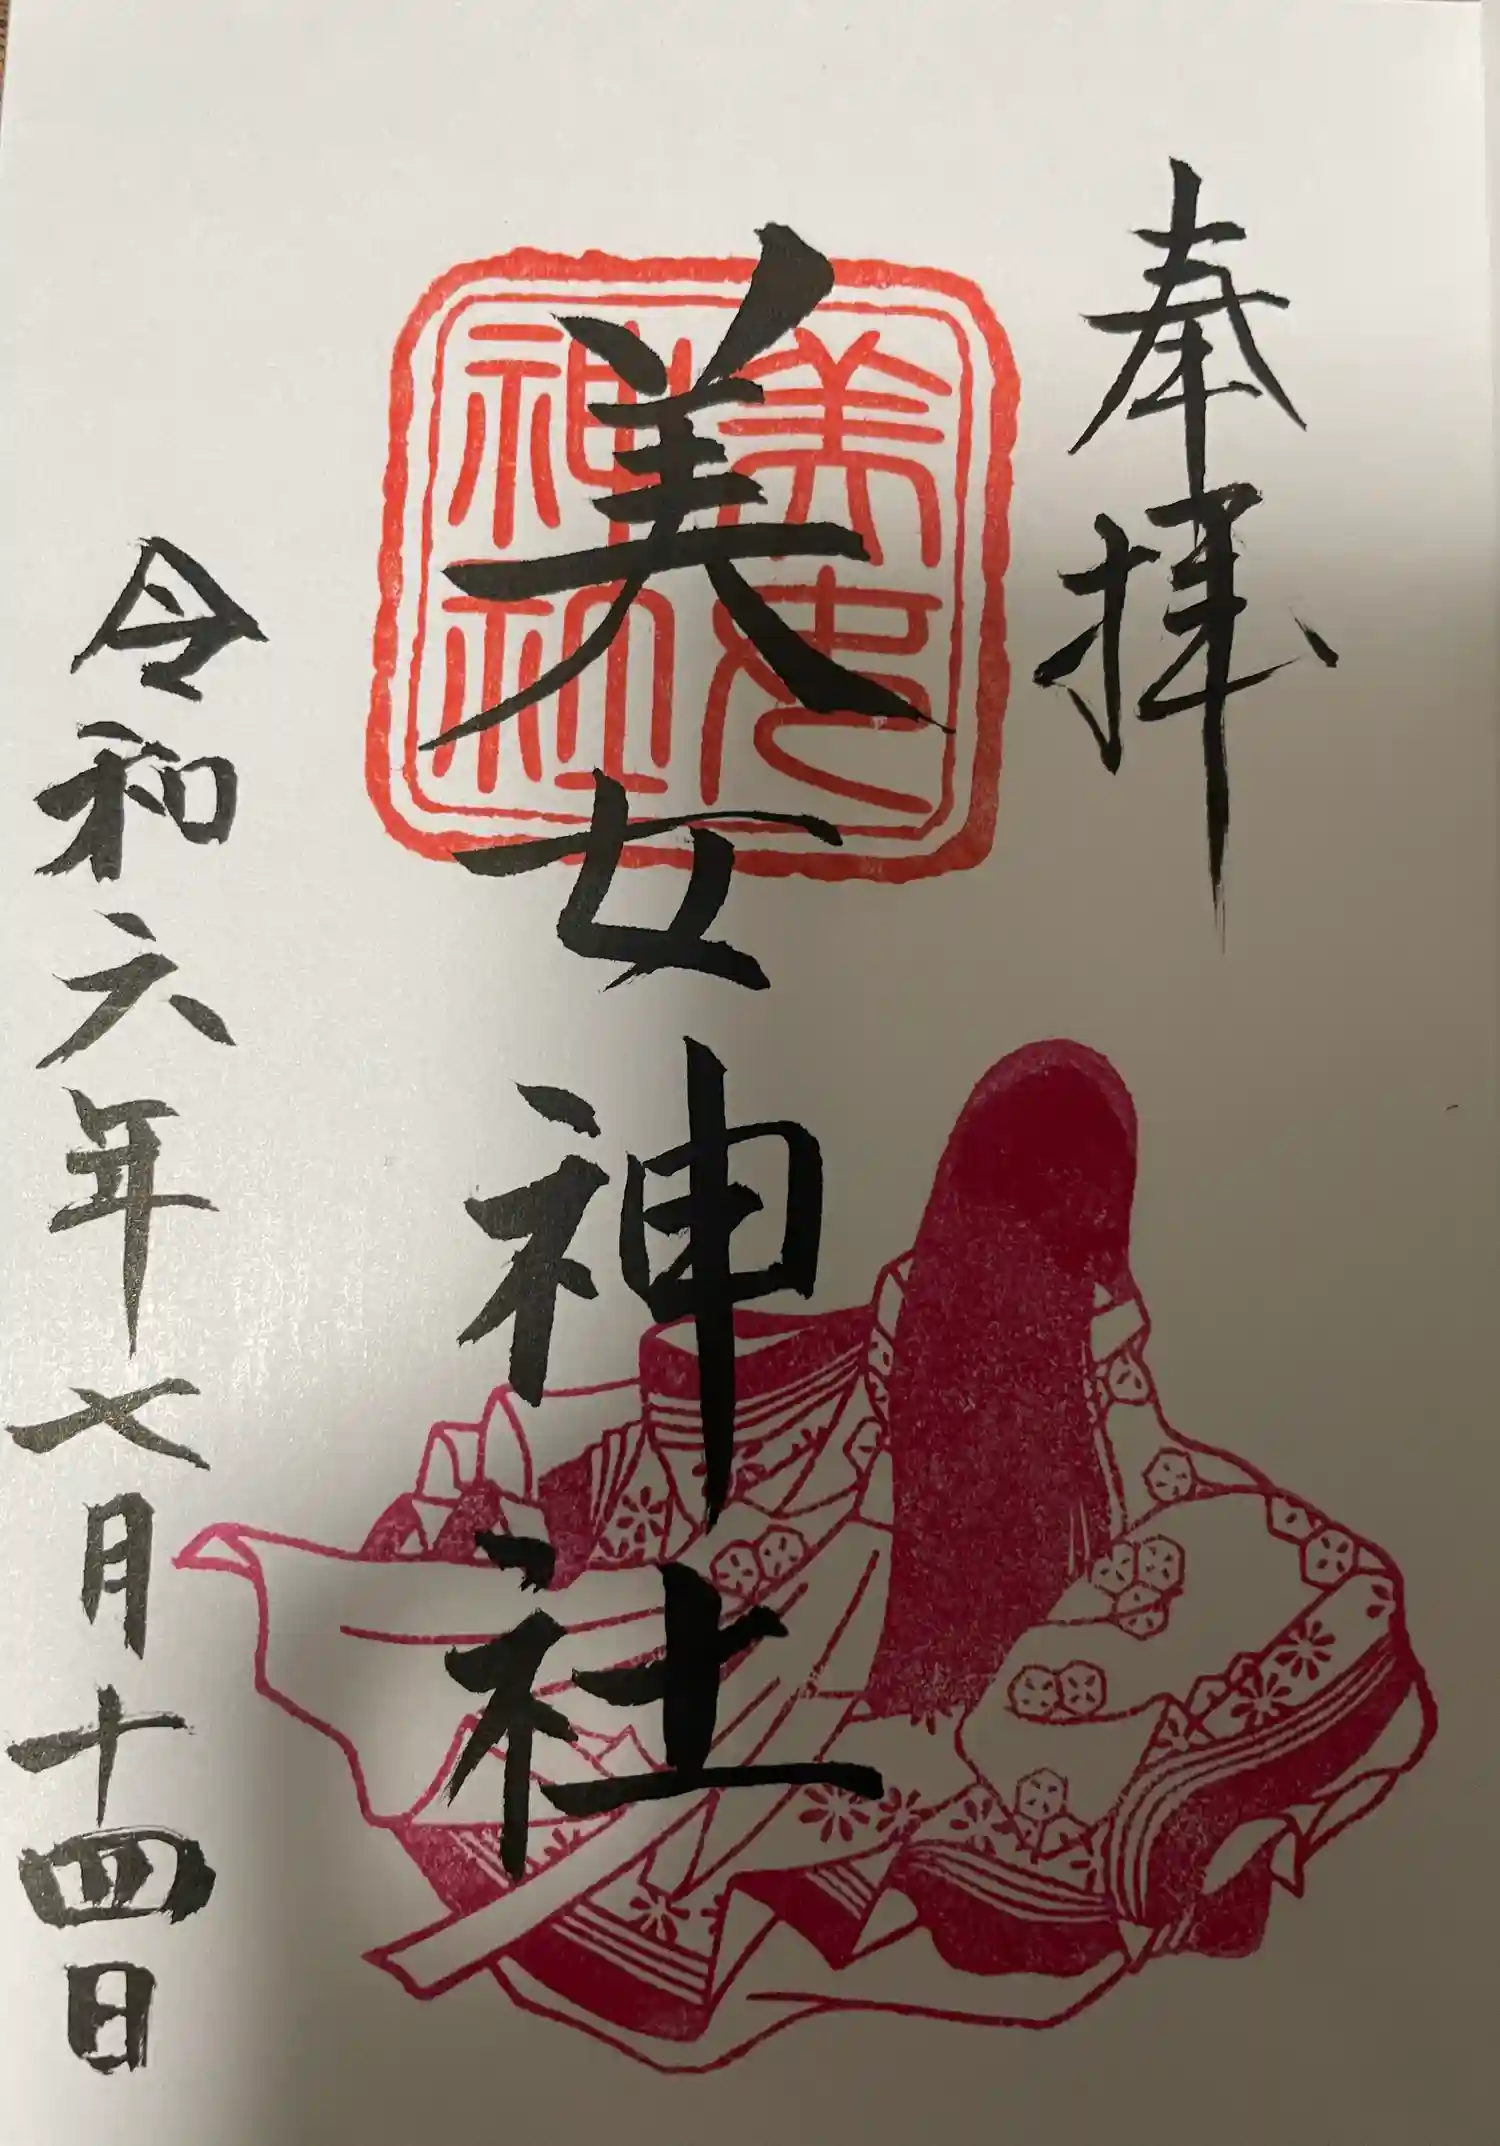 奉拝
美女神社
美女神社
令和六年七月十四日